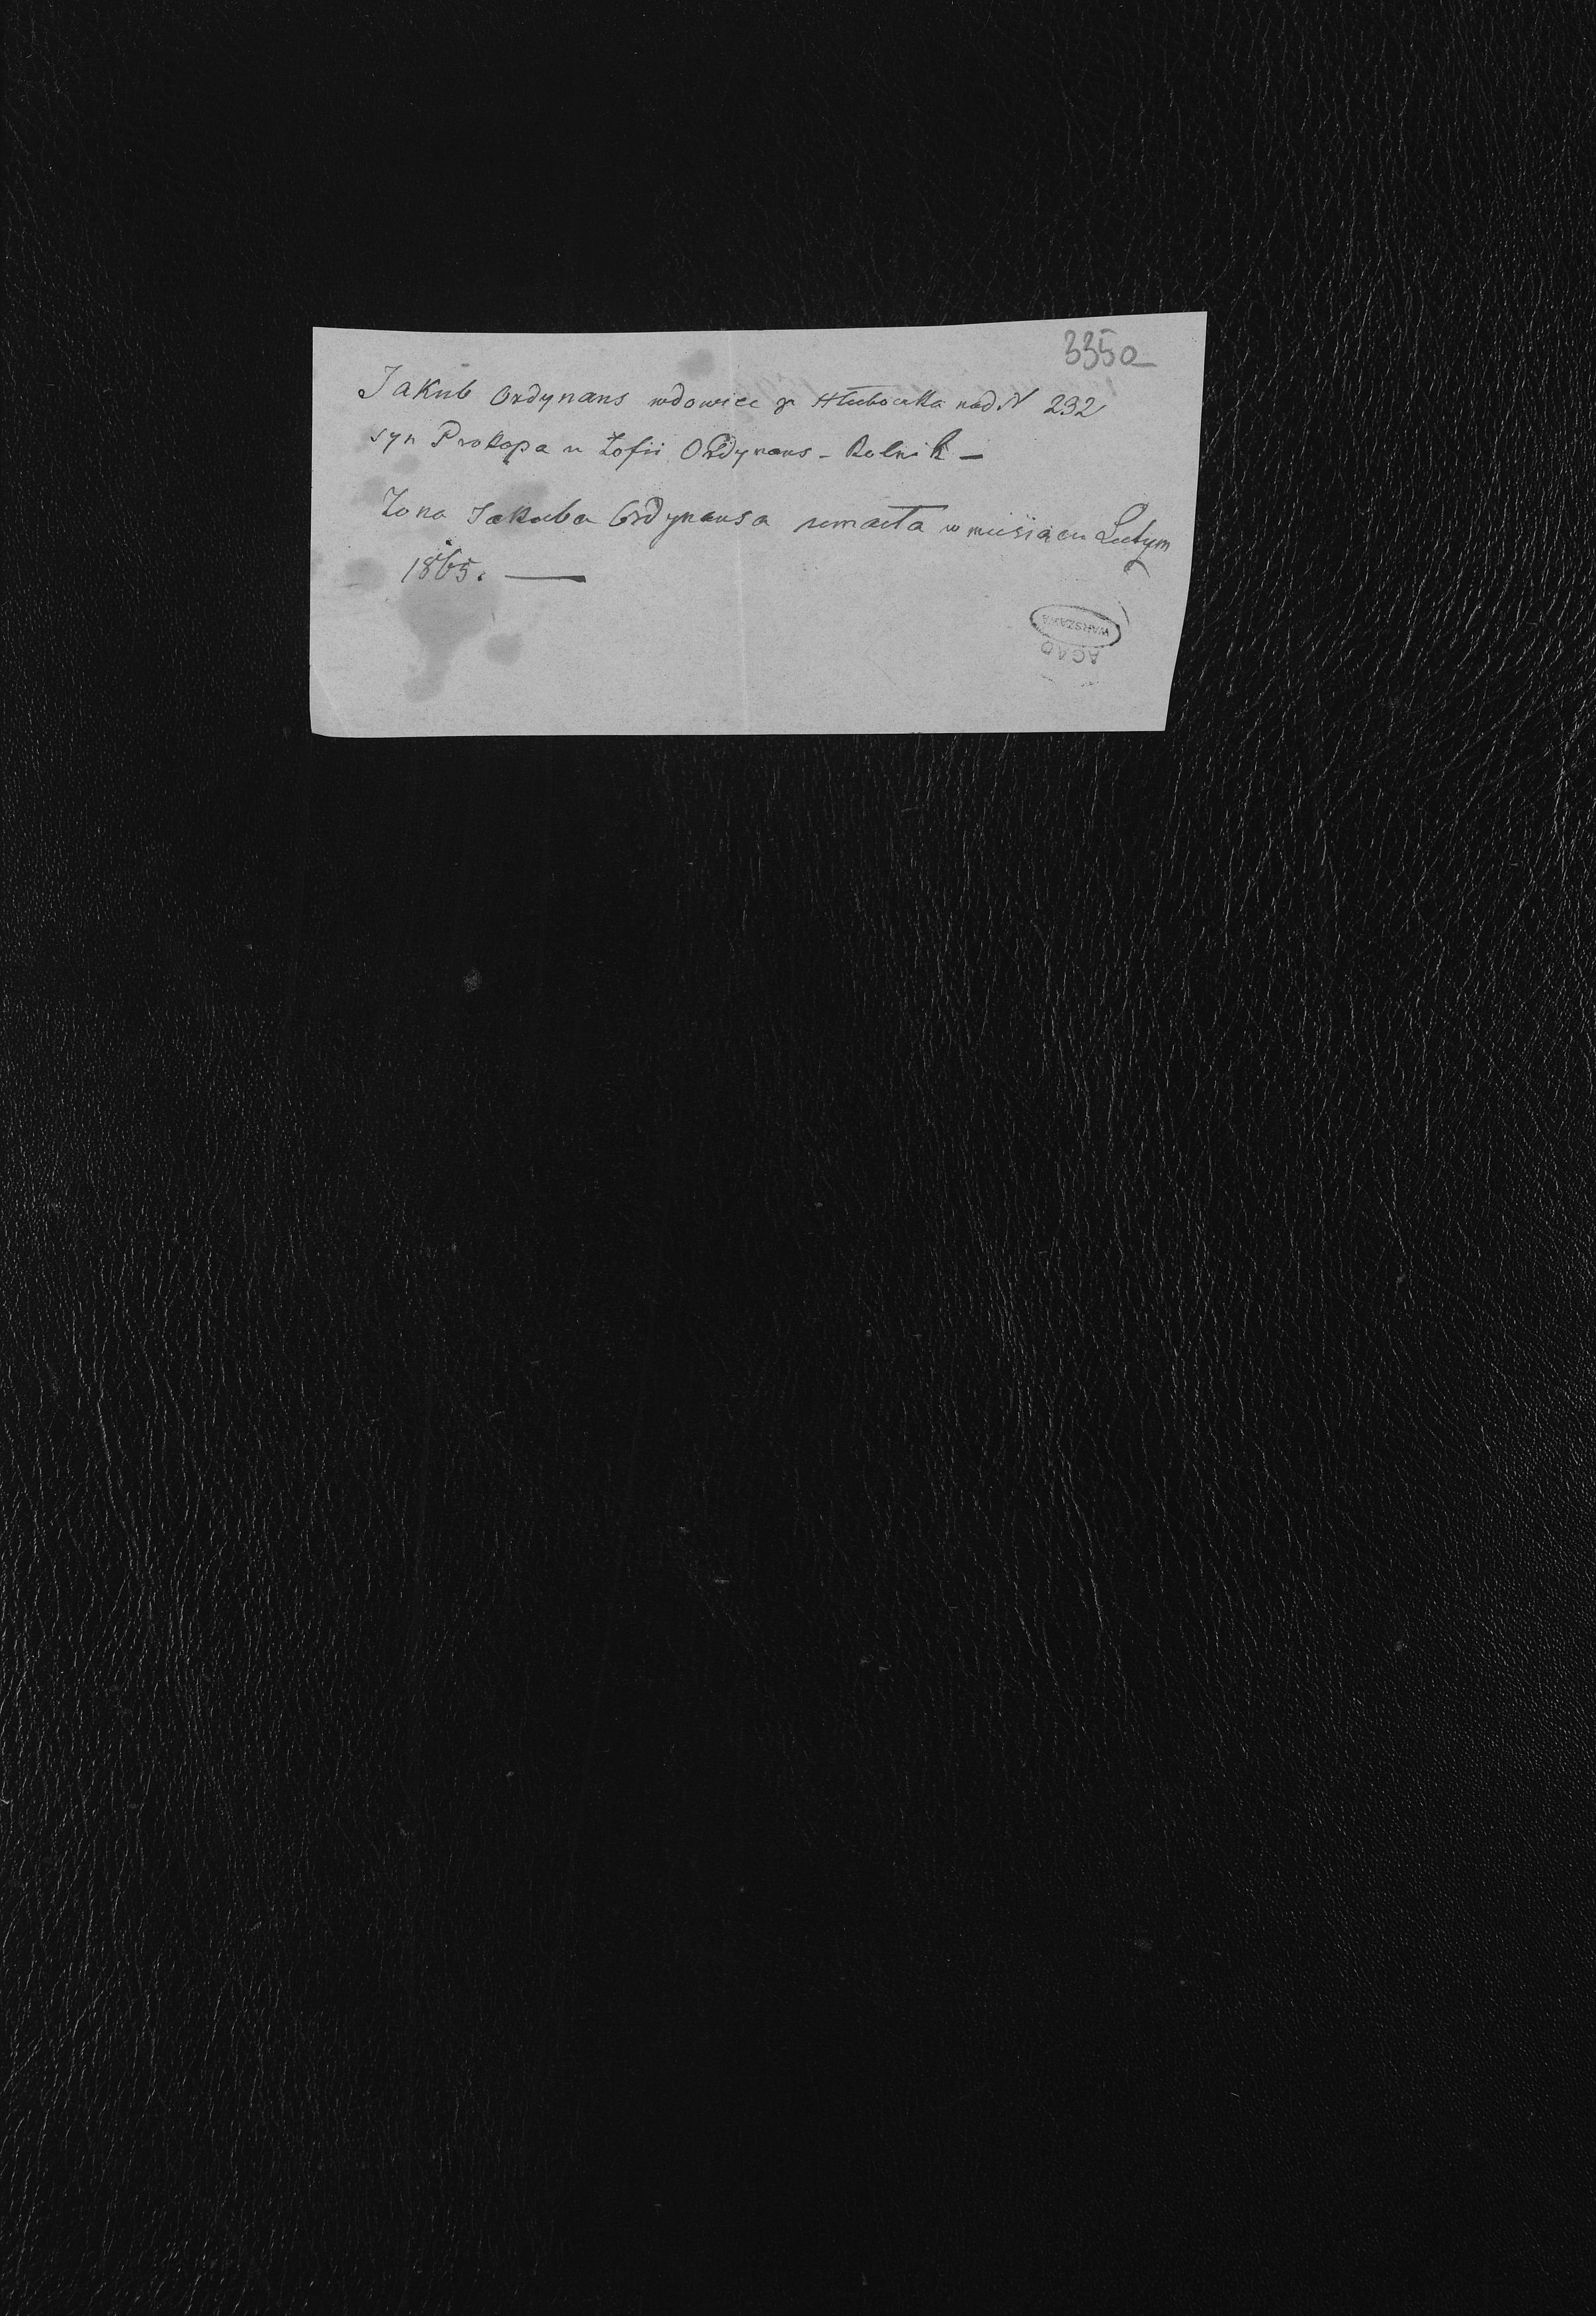 3350
Jakub Ordynans wdowiec z Hłuboczka nad N 232
syn Prokopa u Zofii Ordynans - Rolnik -
Żona Jakuba Ordynansa umarła w miesiącu Lutym
1865. —
WARSZAWA
AGAD